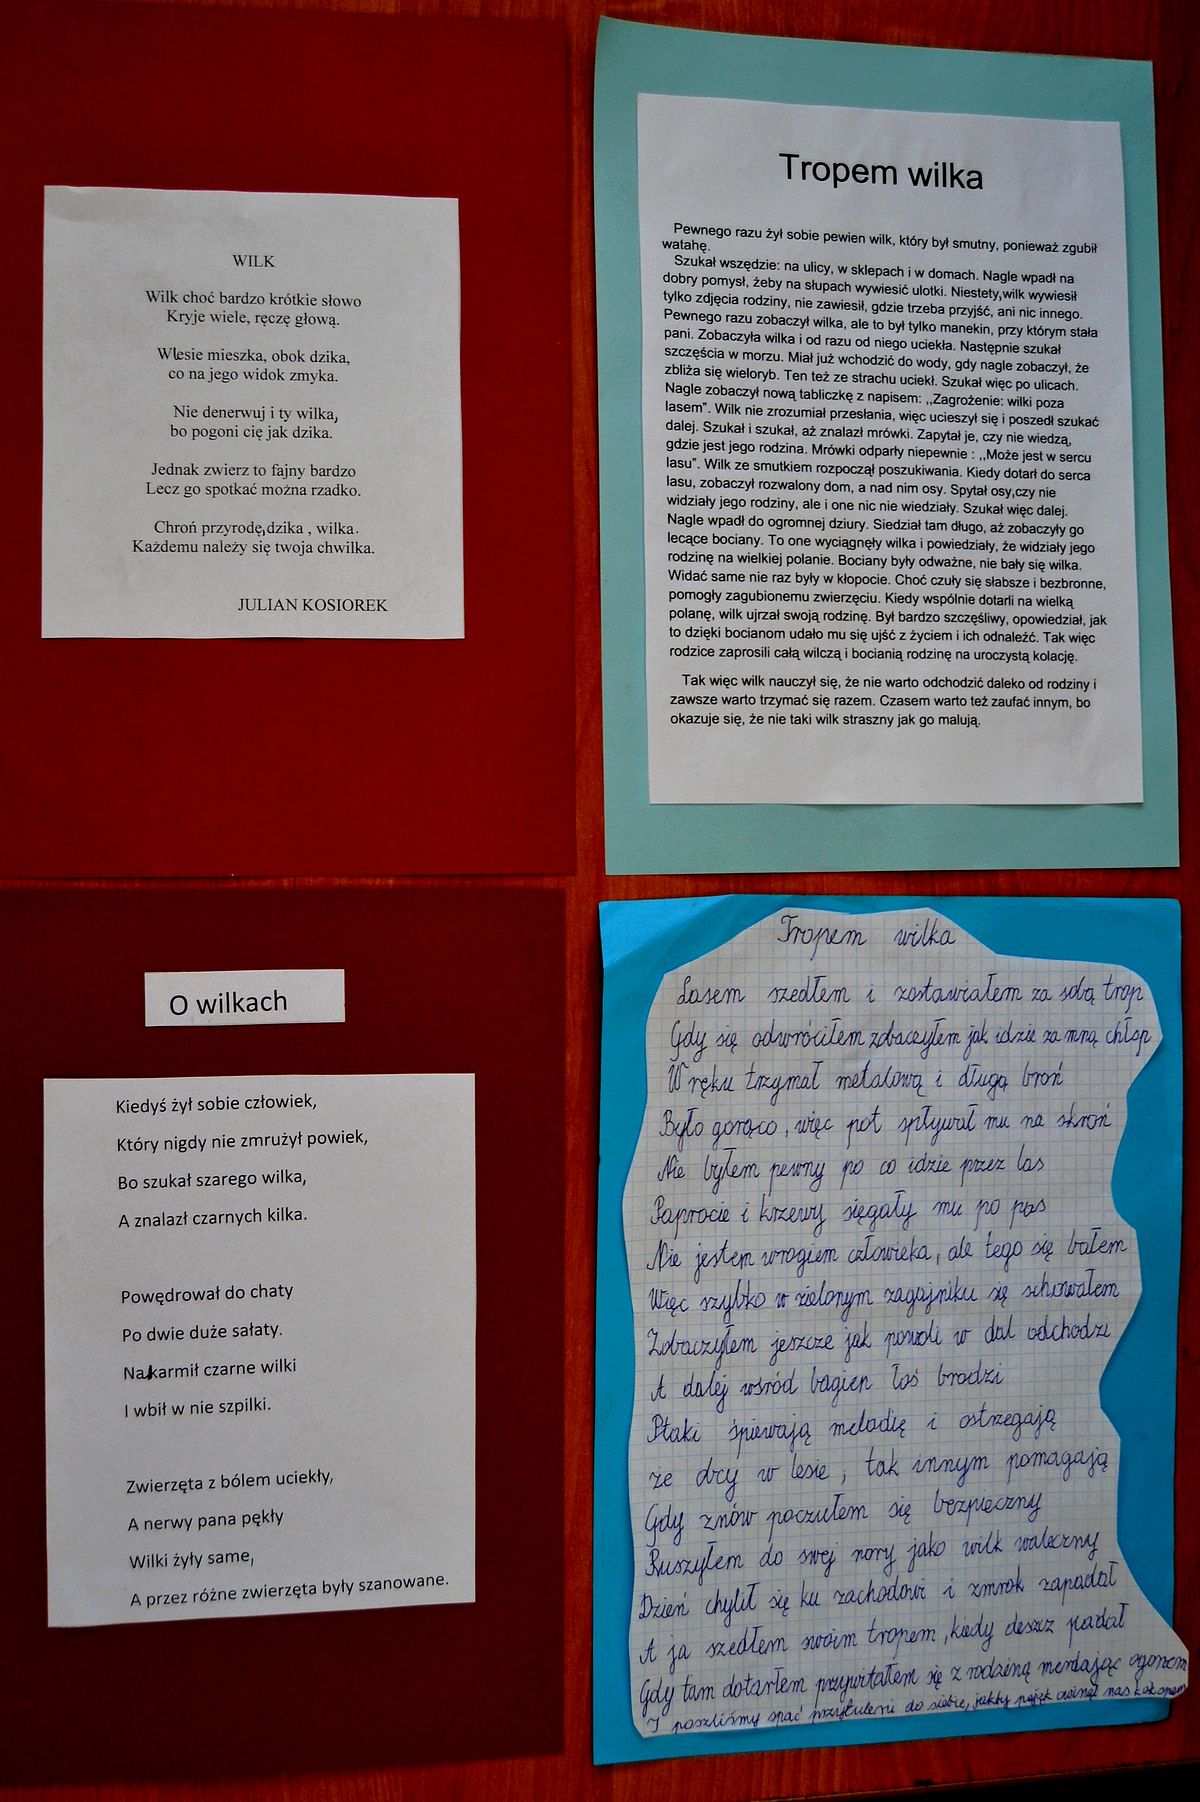 WILK
Wilk choć bardzo krótkie słowo
Kryje wiele, ręczę głową.
Wlesie mieszka, obok dzika,
co na jego widok zmyka.
Nie denerwuj i ty wilka,
bo pogoni cię jak dzika.
Jednak zwierz to fajny bardzo
Lecz go spotkać można rzadko.
Chroń przyrodę,dzika , wilka.
Każdemu należy się twoja chwilka.
JULIAN KOSIOREK
Tropem wilka
Pewnego razu żył sobie pewien wilk, który był smutny, ponieważ zgubił
watahę.
Szukał wszędzie: na ulicy, w sklepach i w domach. Nagle wpadł na
dobry pomysł, żeby na słupach wywiesić ulotki. Niestety,wilk wywiesił
tylko zdjęcia rodziny, nie zawiesił, gdzie trzeba przyjść, ani nic innego.
Pewnego razu zobaczył wilka, ale to był tylko manekin, przy którym stała
pani. Zobaczyła wilka i od razu od niego uciekła. Następnie szukał
szczęścia w morzu. Miał już wchodzić do wody, gdy nagle zobaczył, że
zbliża się wieloryb. Ten też ze strachu uciekł. Szukał więc po ulicach.
Nagle zobaczył nową tabliczkę z napisem: ,,Zagrożenie: wilki poza
lasem”. Wilk nie zrozumiał przesłania, więc ucieszył się i poszedł szukać
dalej. Szukał i szukał, aż znalazł mrówki. Zapytał je, czy nie wiedzą,
gdzie jest jego rodzina. Mrówki odparły niepewnie : ,,Może jest w sercu
lasu”. Wilk ze smutkiem rozpoczął poszukiwania. Kiedy dotarł do serca
lasu, zobaczył rozwalony dom, a nad nim osy. Spytał osy,czy nie
widziały jego rodziny, ale i one nic nie wiedziały. Szukał więc dalej.
Nagle wpadł do ogromnej dziury. Siedział tam długo, aż zobaczyły go
lecące bociany. To one wyciągnęły wilka i powiedziały, że widziały jego
rodzinę na wielkiej polanie. Bociany były odważne, nie bały się wilka.
Widać same nie raz były w kłopocie. Choć czuły się słabsze i bezbronne,
pomogły zagubionemu zwierzęciu. Kiedy wspólnie dotarli na wielką
polanę, wilk ujrzał swoją rodzinę. Był bardzo szczęśliwy, opowiedział, jak
to dzięki bocianom udało mu się ujść z życiem i ich odnaleźć. Tak więc
rodzice zaprosili całą wilczą i bocianią rodzinę na uroczystą kolację.
Tak więc wilk nauczył się, że nie warto odchodzić daleko od rodziny i
zawsze warto trzymać się razem. Czasem warto też zaufać innym, bo
okazuje się, że nie taki wilk straszny jak go malują.
O wilkach
Kiedyś żył sobie człowiek,
Który nigdy nie zmrużył powiek,
Bo szukał szarego wilka,
A znalazł czarnych kilka.
Powędrował do chaty
Po dwie duże sałaty.
Nakarmił czarne wilki
I wbił w nie szpilki.
Zwierzęta z bólem uciekły,
A nerwy pana pękły
Wilki żyły same,
A przez różne zwierzęta były szanowane.
Tropem wilka
Lasem szedłem i zostawiałem za sobą trop
Gdy się odwróciłem zobaczyłem jak idzie za mną chłop
W ręku trzymał metalową i długą broń
Było gorąco, więc pot spływał mu na skroń
Nie byłem pewny po co idzie przez las
Paprocie i krzewy sięgały mu po pas
Nie jestem wrogiem człowieka, ale tego się bałem
Więc szybko w zielonym zagajniku się schowałem
Zobaczyłem jeszcze jak powoli w dal odchodzi
A dalej wśród bagien łoś brodzi
Ptaki śpiewają melodię i ostrzegają
że drcy w lesie, tak innym pomagają
Gdy znów poczułem się bezpieczny
Ruszyłem do swej nory jako wilk waleczny
Dzień chylił się ku zachodowi i zmrok zapadał
A ja szedłem swoim tropem, kiedy deszcz padał
Gdy tam dotarłem przywitałem się z rodziną merdając ogonem
I poszliśmy spać przytuleni do siebie, jakby pająk owinął nas kokonem